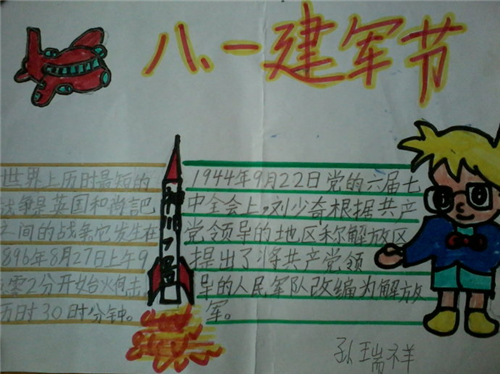 八.一建军节
世界上历时最短的
战争是英国和
之间的战争它发生在
896年8月27日上午9
零2分开始炮击
历时30时分钟。
1944年9月22日党的六届七
中全会上,刘少奇根据共产
党领导的地区和解放区
提出了将共产党领
导的人民军队改编为解放
军。
孙瑞祥